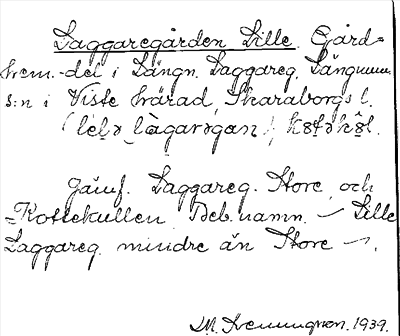 Laggaregården Lille. Gård=
hem.-del i Längn. Laggareg. Längnums
s:n i Viste härad, Skaraborgs l.
(lɛlə làgarəgan), kȣtəkȣl.
Jämf. Laggareg. Store och
=Kottekullen. Deb. namn. ~ Lille
Laggareg. mindre än Store ~.
M. 1939.